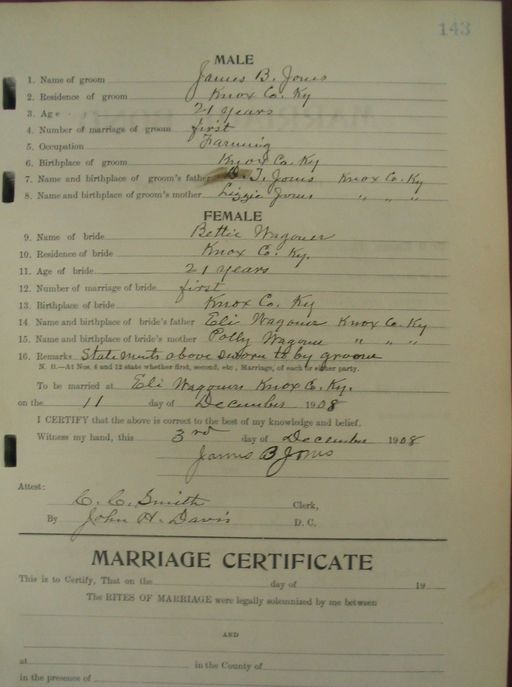 143
MALE
1. Name of groom James B. Jones
2. Residence of groom Knox Co. Ky
3. Age 21 years
4. Number of marriage of groom first
5. Occupation Farming
6. Birthplace of groom Knox Co. Ky
7. Name and birthplace of groom's father D. T. Jones Knox Co. Ky
8. Name and birthplace of groom's mother Lizzie Jones " " "
FEMALE
9. Name of bride Bettie Wagoner
10. Residence of bride Knox Co. Ky.
11. Age of bride 21 years
12. Number of marriage of bride first
13. Birthplace of bride Knox Co. Ky
14. Name and birthplace of bride's father Eli Wagoner Knox Co. Ky
15. Name and birthplace of bride's mother Polly Wagone " " "
16. Remarks Statements above sworn to by groom
N. B.—At Nos. 4 and 12 state whether first, second, etc., Marriage, of each or either party.
To be married at Eli Wagoners Knox Co. Ky.
on the 11 day of December 1908
I CERTIFY that the above is correct to the best of my knowledge and belief.
Witness my hand, this 3rd day of December 1908
James B Jones
Attest:
C. C. Smith Clerk,
By John H. Davis D. C.
MARRIAGE CERTIFICATE
This is to Certify, That on the day of 19
The RITES OF MARRIAGE were legally solemnized by me between
AND
at in the County of
in the presence of